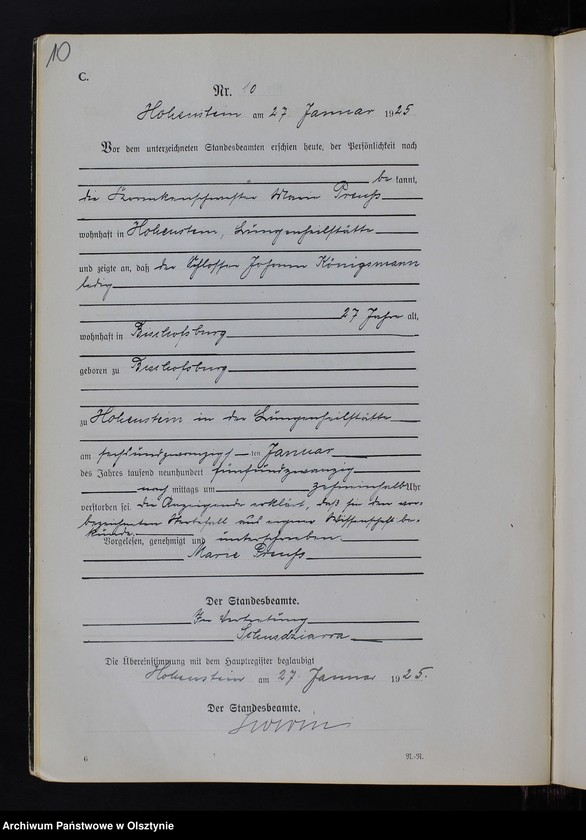 10
C.
Nr. 10
Hohenstein am 27 Januar 1925
Vor dem unterzeichneten Standesbeamten erschien heute, der Persönlichkeit nach
be kannt,
die Krankenschwester Marie Preuß
wohnhaft in Hohenstein, Lungenheilstätte
und zeigte an, daß der Schlosser Johann Königsmann
ledig
27 Jahre alt,
wohnhaft in Bischofsburg
geboren zu Bischofsburg
zu Hohenstein in der Lungenheilstätte
am sechsundzwanzigsten Januar
des Jahres tausend neunhundert fünfundzwanzig
nach mittags um zehneinhalb Uhr
verstorben sei. Die Anzeigende erklärt, daß sie den vor-
bezeichneten Sterbefall aus eigener Wissenschaft be-
kunde.
Vorgelesen, genehmigt und unterschrieben
Marie Preuß
Der Standesbeamte.
In Vertretung
Die Übereinstimmung mit dem Hauptregister beglaubigt
Hohenstein am 27. Januar 1925.
Der Standesbeamte.
6
N.-R.
Archiwum Państwowe w Olsztynie